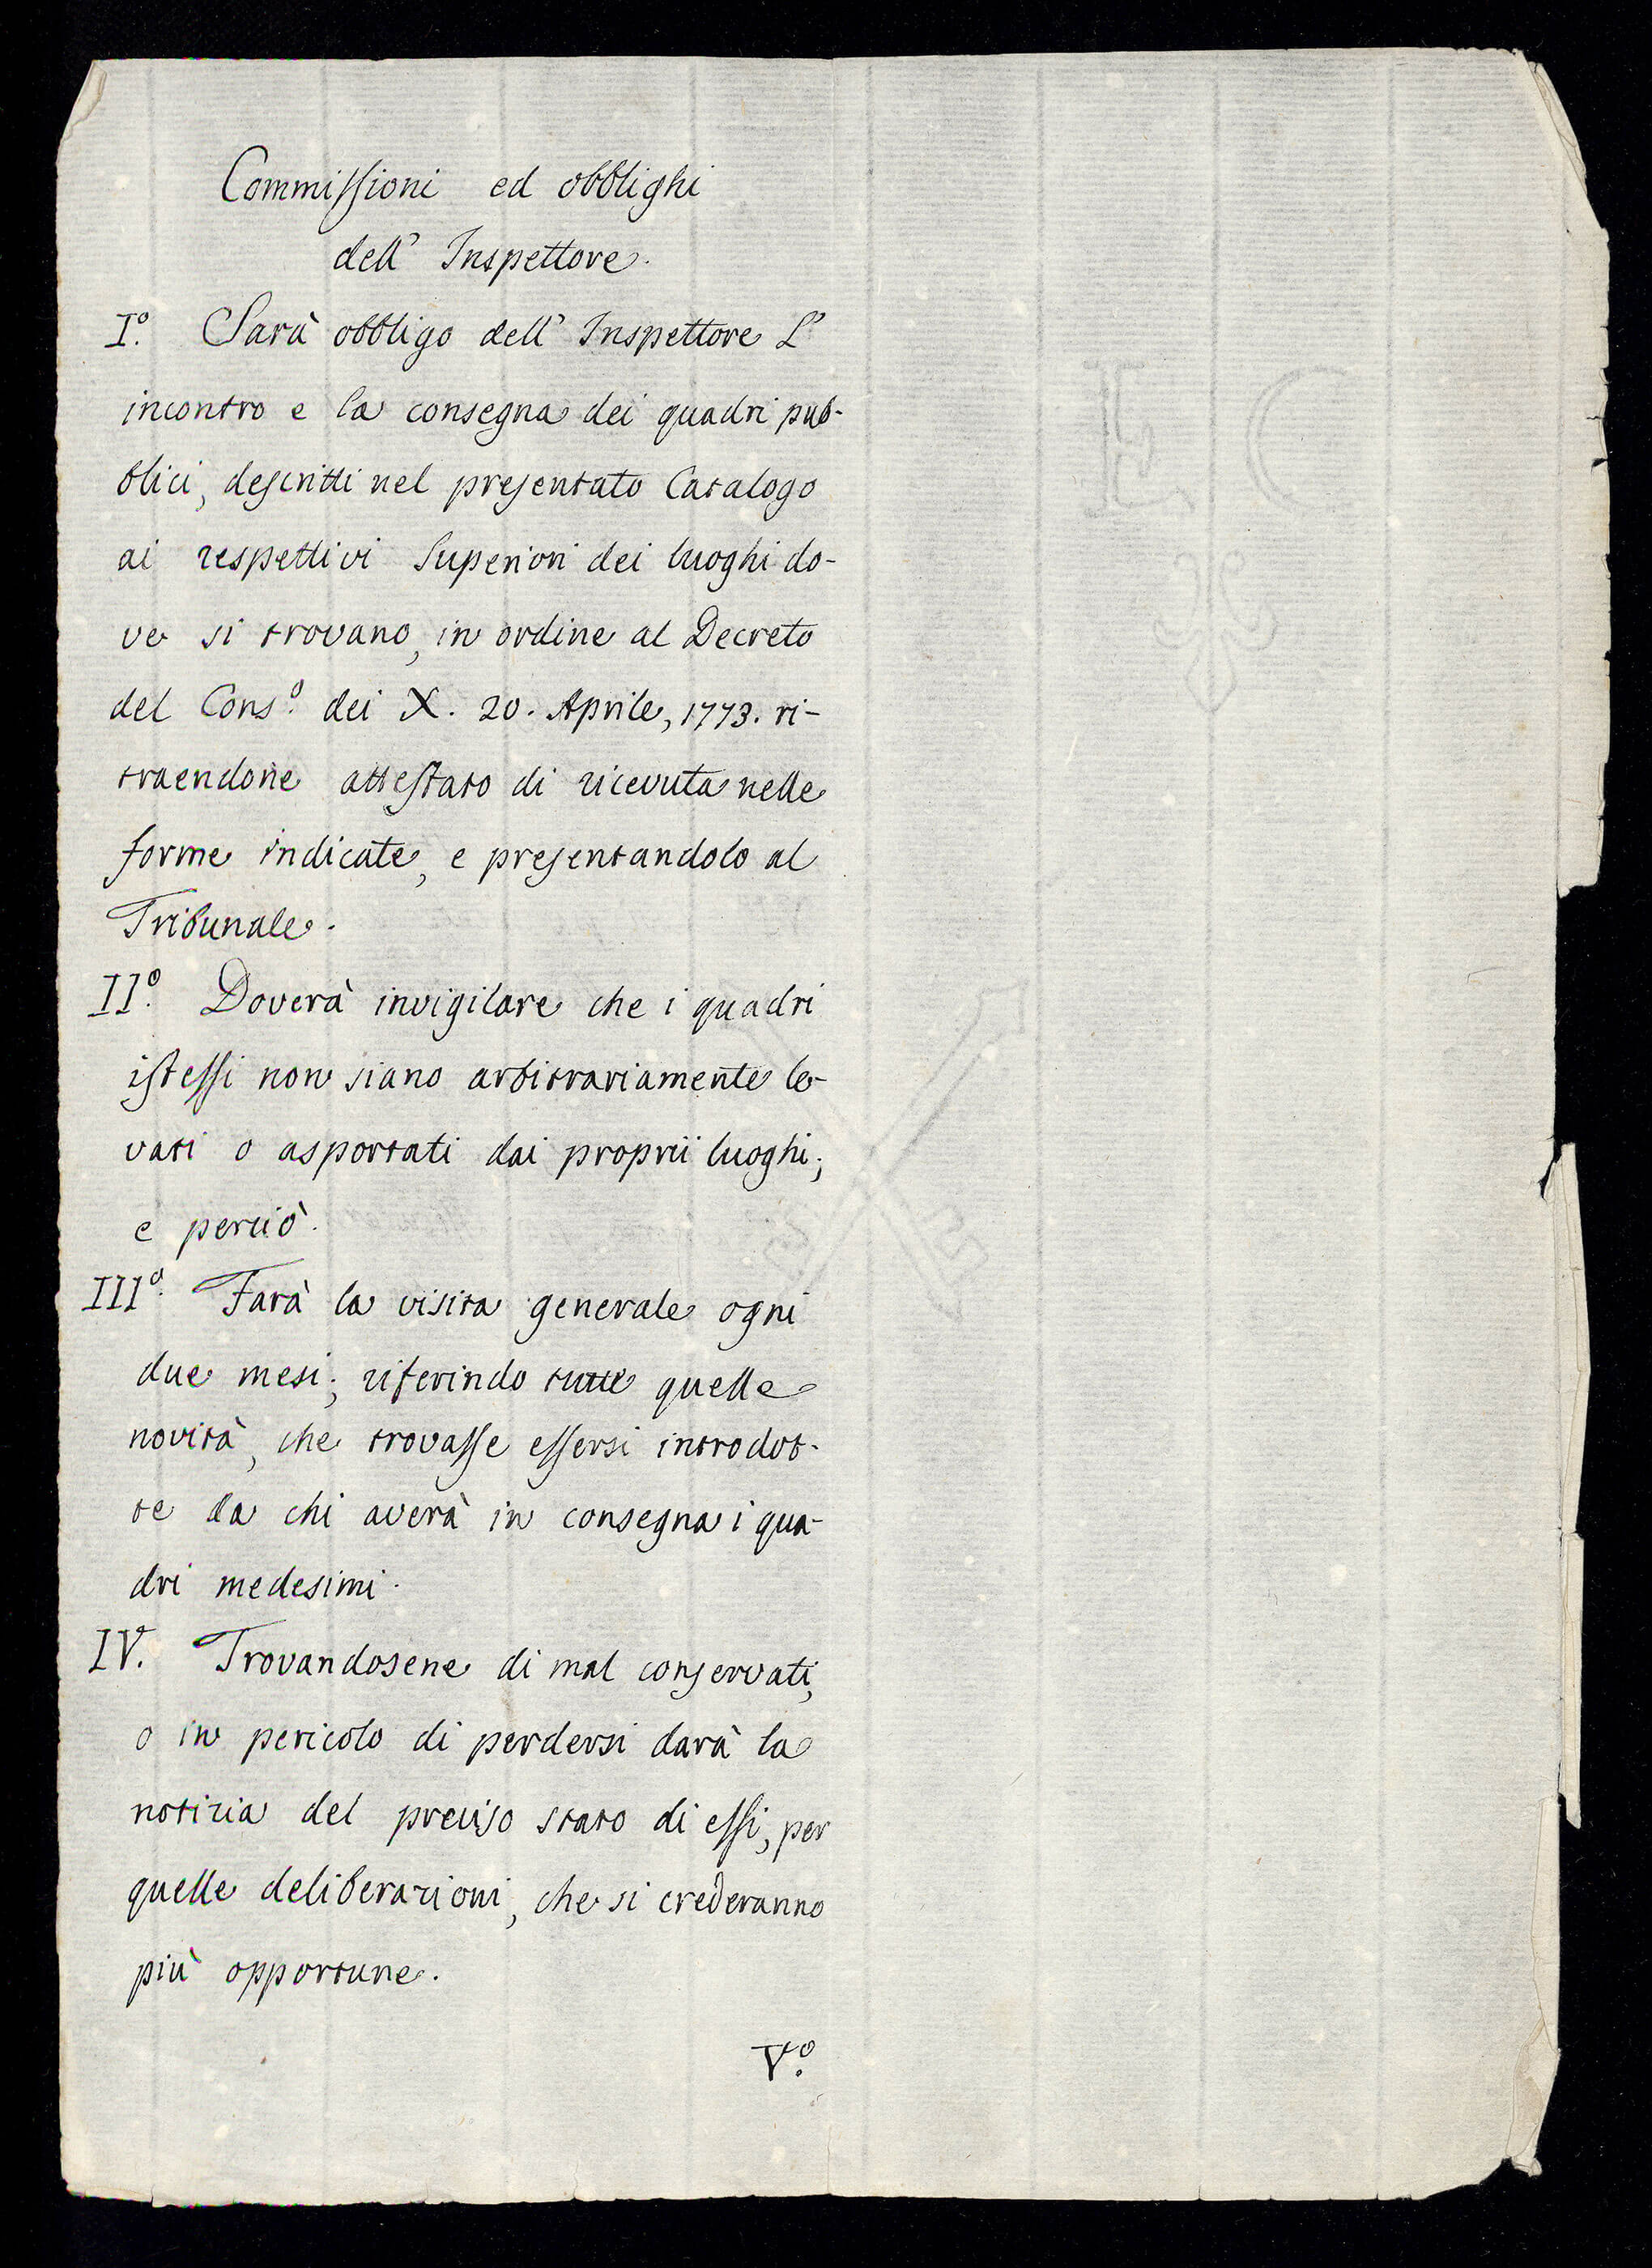 Commissioni ed obblighi
dell' Inspettore.
I.º Sarà obbligo dell' Inspettore L'
incontro e la consegna dei quadri pub-
blici, descritti nel presentato Catalogo
ai respettivi Superiori dei luoghi do-
ve si trovano, in ordine al Decreto
del Cons.º dei X. 20. Aprile, 1773. ri-
traendone attestato di ricevuta nelle
forme indicate, e presentandolo al
Tribunale.
II.º Doverà invigilare che i quadri
istessi non siano arbitrariamente le-
vati o asportati dai proprii luoghi;
e perciò.
III.º Farà la visita generale ogni
due mesi; riferindo tutte quelle
novità, che trovasse essersi introdot-
te da chi averà in consegna i qua-
dri medesimi.
IV. Trovandosene di mal conservati,
o in pericolo di perdersi darà la
notizia del preciso stato di essi, per
quelle deliberazioni, che si crederanno
più opportune.
V.º